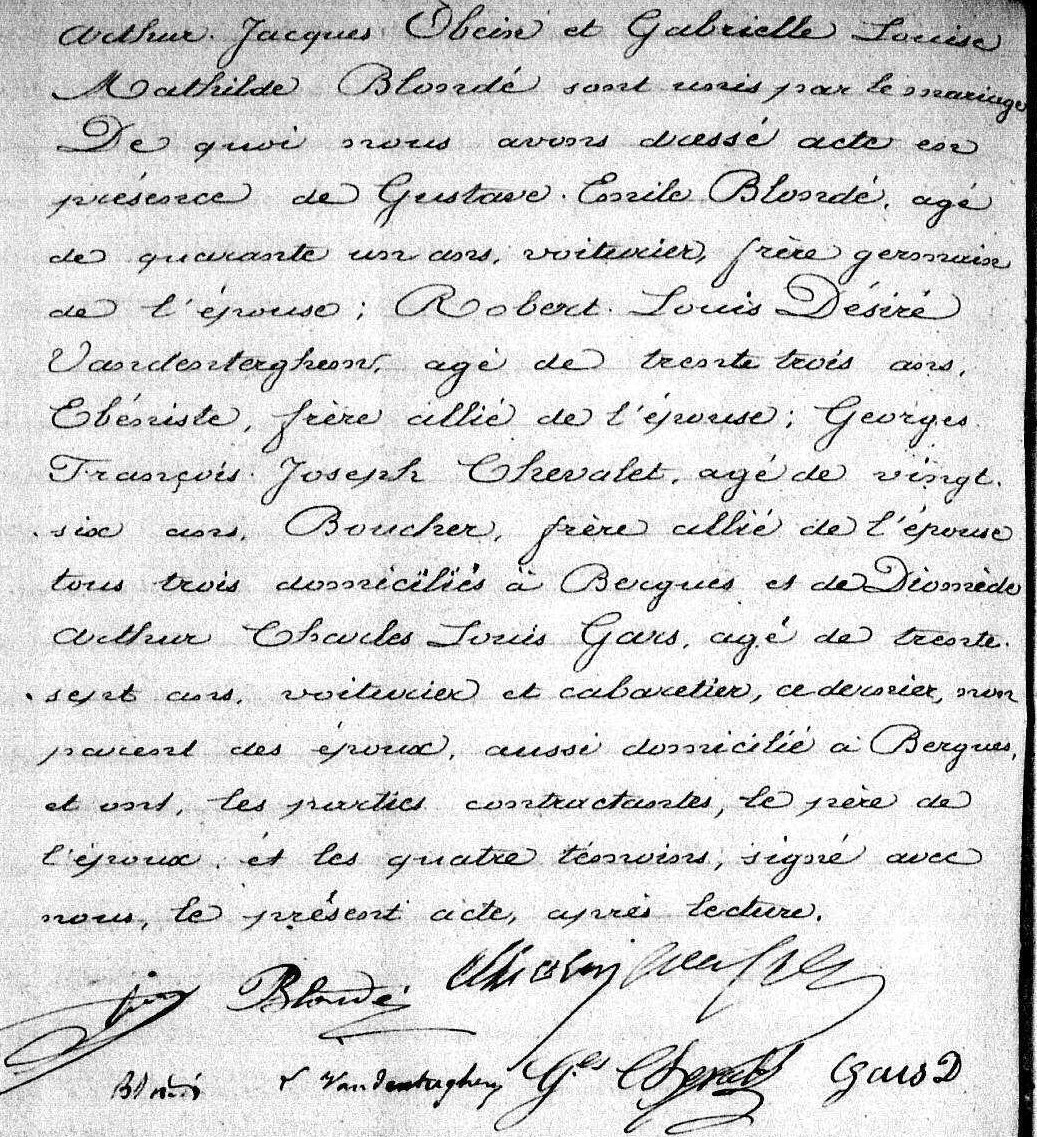 Arthur Jacques Obein et Gabrielle Louise
Mathilde Blondé sont unis par le mariage
De quoi nous avons dressé acte en
présence de Gustave Emile Blondé, agé
de quarante un ans, voiturier, frère germain
de l'épouse ; Robert Louis Désiré
Vandenterghem, agé de trente trois ans,
Ebéniste, frère allié de l'épouse ; Georges
François Joseph Chevalet, agé de vingt
six ans, Boucher, frère allié de l'épouse
tous trois domiciliés à Bergues et de Diomède
Arthur Charles Louis Gars, agé de trente
sept ans, voiturier et cabaretier, ce dernier, non
parent des époux, aussi domicilié à Bergues,
et ont, les parties contractantes, le père de
l'époux et les quatre témoins, signé avec
nous, le présent acte, après lecture.
Blondé
Blondé Vandenterghem Ges Chevalet Gars D